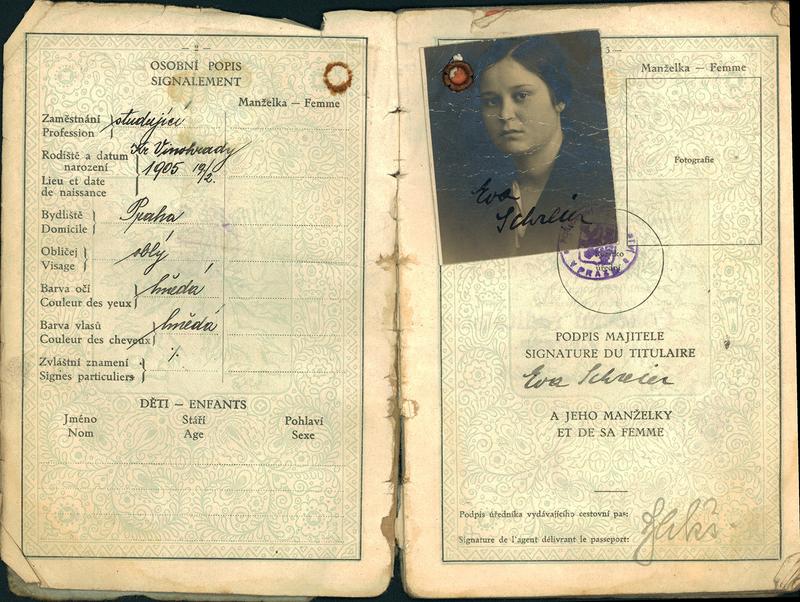 — 2 —
OSOBNÍ POPIS
SIGNALEMENT
Manželka — Femme
Zaměstnání
Profession
studující
Rodiště a datum
narození
Lieu et date
de naissance
Kr. Vinohrady
1905 19/2.
Bydliště
Domicile
Praha
Obličej
Visage
oblý
Barva očí
Couleur des yeux
hnědá
Barva vlasů
Couleur des cheveux
hnědá
Zvláštní znamení
Signes particuliers
%
DĚTI — ENFANTS
Jméno Stáří Pohlaví
Nom Age Sexe
3 —
Manželka — Femme
Fotografie
Eva
Schreier
V PRAZE
PODPIS MAJITELE
SIGNATURE DU TITULAIRE
Eva Schreier
A JEHO MANŽELKY
ET DE SA FEMME
Podpis úředníka vydávajícího cestovní pas:
Signature de l'agent délivrant le passeport: